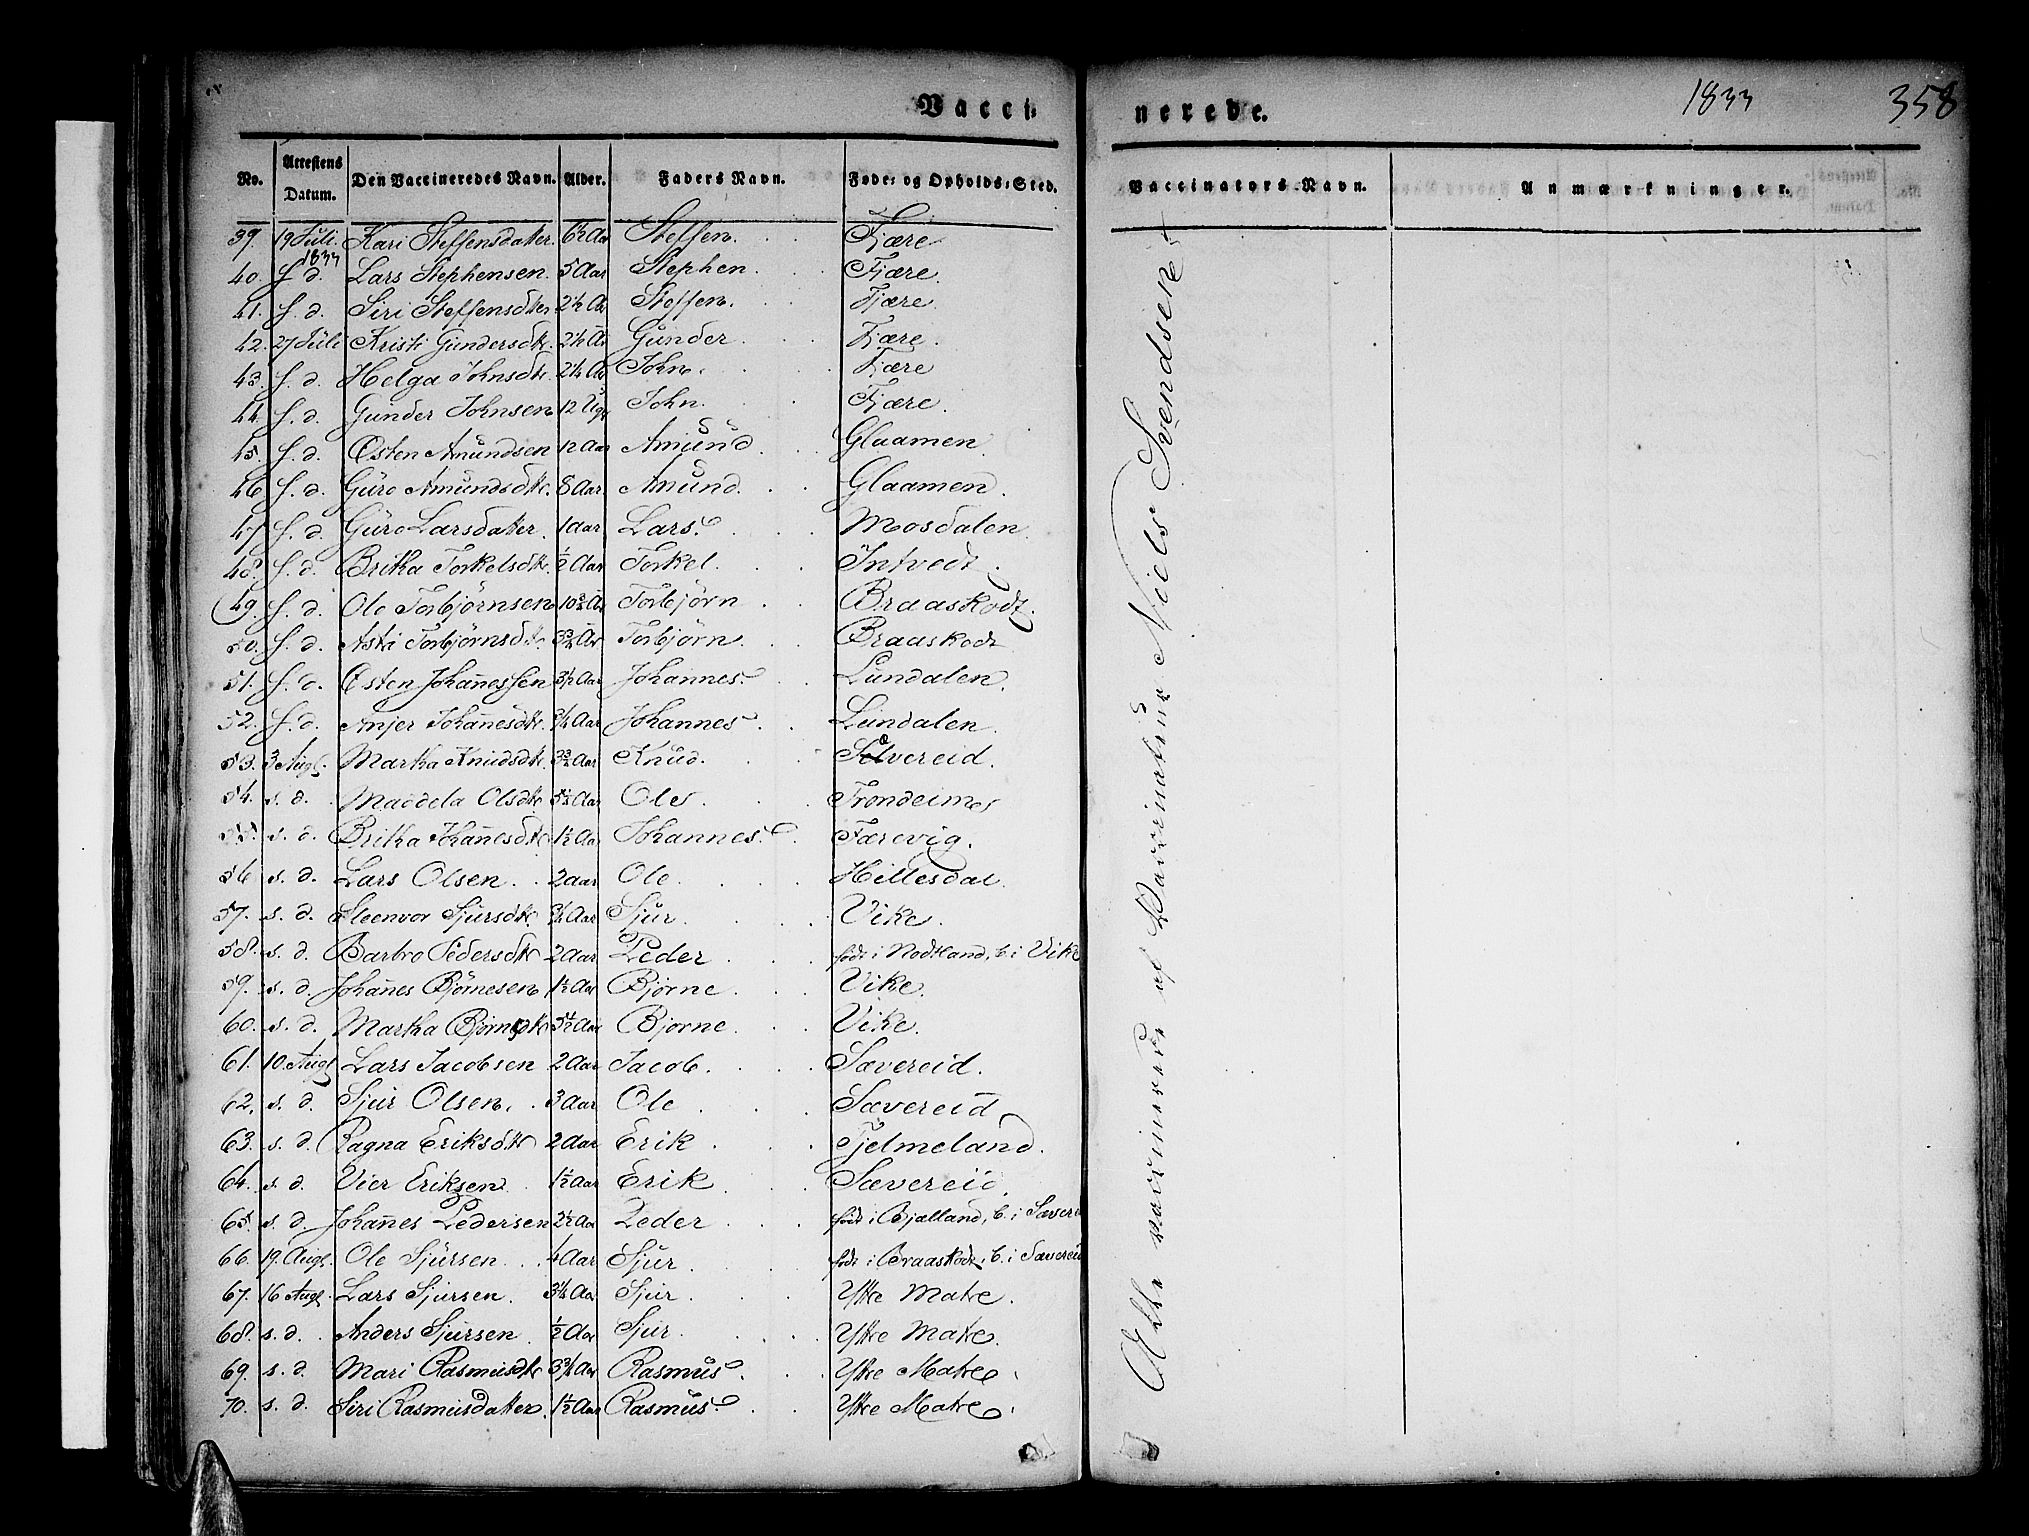 Vacci- nerede. 1833 358
No. Attestens Datum. Den Vaccineredes Navn. Alder. Faders Navn. Føde- og Opholds-Sted. Vaccinators Navn. Anmærkninger.
39. 19 Juli 1833 Kari Steffensdatter. 6½ Aar Steffen. Fjære
40. f. d. Lars Stephensen. 5 Aar Stephen Fjære.
41. f. d. Siri Steffensdtter 2½ Ar Steffen. Fjære
42. 27 Juli Kristi Gundersdtr. 2½ Ar Gunder Fjære.
43. f. d. Helga Johnsdtr. 2¼ Ar John. Fjære
44. f. d. Gunder Johnsen 12 Ugr John. Fjære.
45. f. d. Østen Amundsen 12 Aar Amund Glaamen.
46. f. d. Guro Amundsdtr. 8 Aar. Amund. Glaamen.
47. f. d. Guro Larsdatter. 1 aar Lars. Mosdalen.
48. f. d. Britha Torkelsdtr. ½ Aar Torkel. Intvedt.
49. f. d. Ole Torbjörnsen Torbjörn Braaskodt.
50. f. d. Asti Torbjörnsdtr. 3¾ Ar Torbjörn. Braaskodt
51. f. d. Østen Johannessen Aar Johannes. Lundalen.
52. f. d. Anjer Johanesdtr. ¾ Aar Johannes Lundalen.
53. 3 Augt. Martha Knudsdtr. Aar Knud. vereid.
54. s. d. Maddela Olsdtr 5½ Aar Ole. Trondeimer
55. s. d. Britha Johanesdtr 1½ Aar Johannes. Færevig.
56 s. d. Lars Olsen. 2 aar Ole. Hillesdal.
57. s. d. Steenvor Sjursdtr. ¾ Aar Sjur Vike.
58. s. d. Barbro Pedersdtr 2 Aar Peder født i Nodtland, b. i Vike
59. s. d. Johanes Björnesen 1½ Aar Bjørne Vike.
60. s. d. Martha Bjørnsdtr 5½ Aar Bjorne. Vike.
61. 10. Augt Lars Jacobsen 2 Aar Jacob. Sævereid.
62. s. d. Sjur Olsen. 3 Aar Ole Sævereid
63. s. d. Ragna Eriksdtr 2 Aar Erik Fjelmeland.
64. s. d. Vier Eriksen 1½ Aar Erik Sævereid.
65. s. d. Johanes Pedersen 2½ Aar Peder født i Bjælland, b. i Sæverei
66. 19. Augt. Ole Sjursen. 4 Aar Sjur født i Braaskodt, b. i Sævereid
67. 16 Augt. Lars Sjursen. 3¼ Aar Sjur Ytre Matre.
68. s. d. Anders Sjursen ½ Aar Sjur. Ytre Matre.
69. s. d. Mari Rasmusdtr 3¾ Aar Rasmus. Ytre Matre.
70. s. d. Siri Rasmusdatter. 1½ Aar Rasmus. Ytre Matre.
Alle vaccinerede af Vaccinateur Niels Svendsen